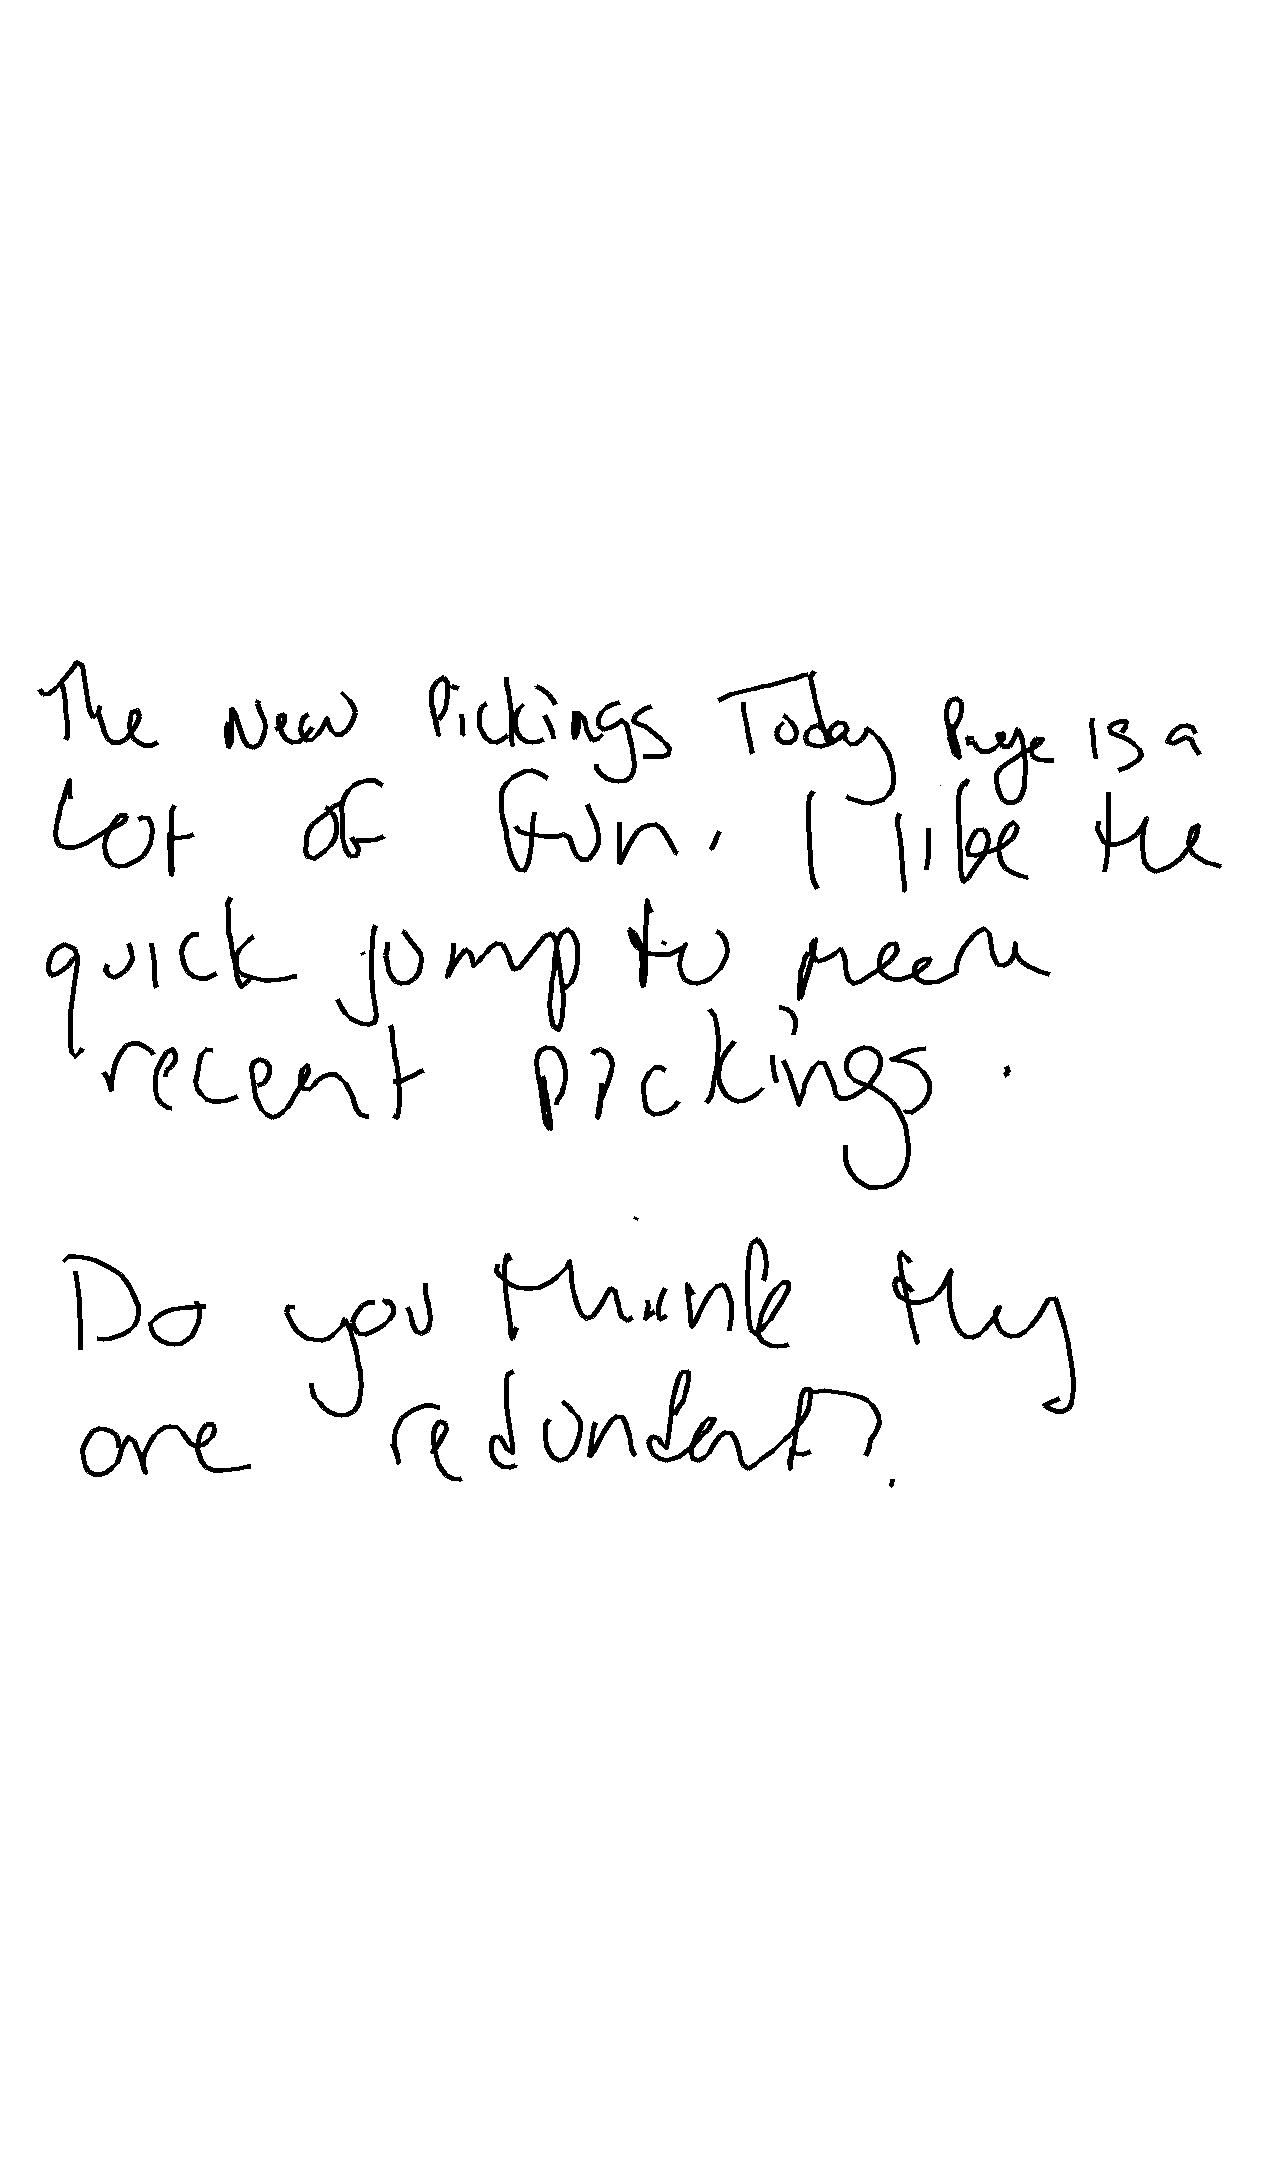 The New Pickings Today Page is a
lot of fun. I like the
quick jump to more
recent pickings.
Do you think they
are redundant?